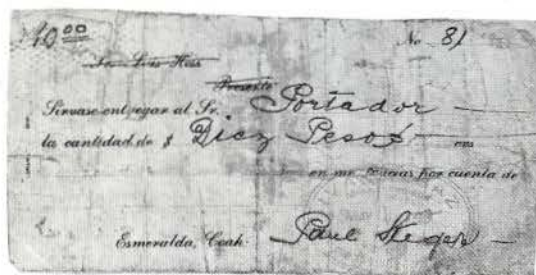 $10.00 No 81
Sr. Luis Hess
Presente
Sírvase entregar al Sr. Portador
la cantidad de $ Diez Pesos cvs
en mercancías por cuenta de
Esmeralda, Coah. Paul